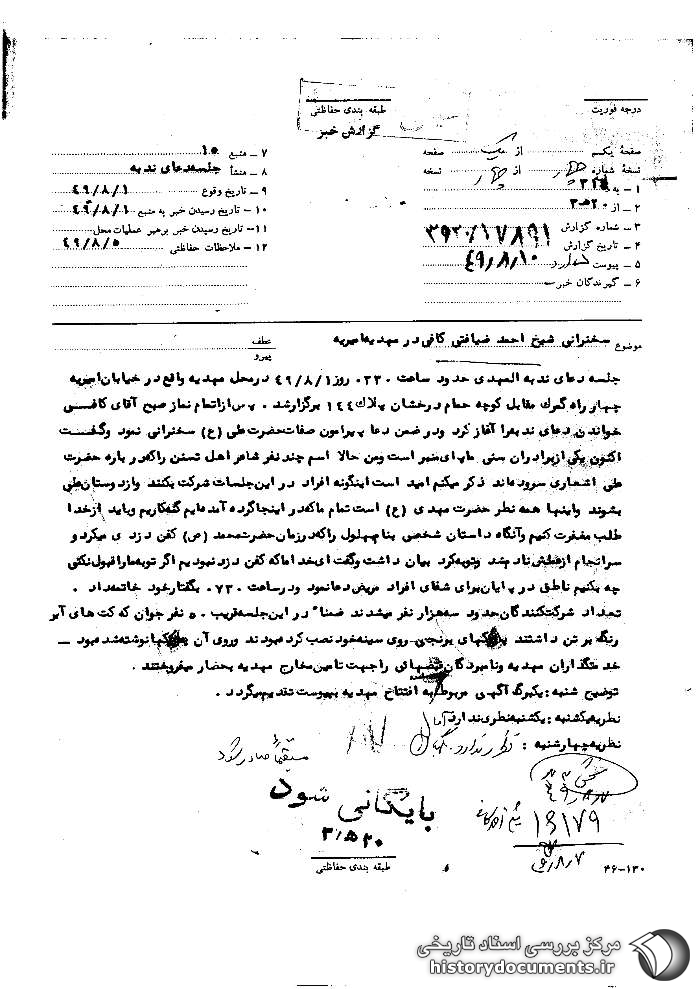 درجه فوریت
طبقه بندی حفاظتی
گزارش خبر
صفحهٔ یکم از یک صفحه
نسخهٔ شماره چهار از چهار نسخه
۱ ـ به ۳۲۱
۲ ـ از ۲۰ه۳
۳ ـ شماره گزارش ۳۹۲۰/۱۷۸۹۱
۴ ـ تاریخ گزارش ۴۹/۸/۱۰
۵ ـ پیوست دارد
۶ ـ گیرندگان خبر
۷ ـ منبع
۸ ـ منشأ جلسه دعای ندبه
۹ ـ تاریخ وقوع ۴۹/۸/۱
۱۰ ـ تاریخ رسیدن خبر به منبع ۴۹/۸/۱
۱۱ ـ تاریخ رسیدن خبر برهبر عملیات محل
۱۲ ـ ملاحظات حفاظتی ۴۹/۸/۵
موضوع سخنرانی شیخ احمد ضیافتی کافی در مهدیه امیریه
عطف
پیرو
جلسه دعای ندبه المهدی حدود ساعت ۰۳۳۰ روز ۴۹/۸/۱ در محل مهدیه واقع در خیابان امیریه
چهار راه گمرک مقابل کوچه حمام درخشان پلاک ۱۴۴ برگزار شد . پس از اتمام نماز صبح آقای کافی
خواندن دعای ندبه را آغاز کرد و در ضمن دعا پیرامون صفات حضرت علی (ع) سخنرانی نمود و گفت
اکنون یکی از برادران سنی ما پای منبر است ومن حالا اسم چند نفر شاعر اهل تسنن را که در باره حضرت
علی اشعاری سروده اند ذکر میکنم امید است اینگونه افراد در این جلسات شرکت بکنند و از دوستان علی
بشوند و اینها همه نظر حضرت مهدی (ع) است تمام ما که در اینجا گرد آمده ایم گنهکاریم و باید از خدا
طلب مغفرت کنیم و آنگاه داستان شخصی بنام بهلول را که در زمان حضرت محمد (ص) کفن دزدی میکرد و
سرانجام از عملش نادم شد و توبه کرد بیان داشت و گفت ای خدا ما که کفن دزد نبودیم اگر توبه ما را قبول نکنی
چه بکنیم ناطق در پایان برای شفای افراد مریض دعا نمود و در ساعت ۰۷۳۰ بگفتار خود خاتمه داد .
تعداد شرکت کنندگان حدود سه هزار نفر میشدند ضمناً در این جلسه قریب ۵۰ نفر جوان که کت های آبی
رنگ بر تن داشتند پلاکهای برنجی روی سینه خود نصب کرده بودند و روی آن پلاکها نوشته شده بود ـ
خدمتگذاران مهدیه و نامبردگان قبضهائی را جهت تامین مخارج مهدیه بحضار میفروختند .
توضیح شنبه : یکبرگ آگهی مربوط به افتتاح مهدیه به پیوست تقدیم میگردد .
نظریه یکشنبه : یکشنبه نظری ندارد آمال
نظریه چهارشنبه : نظری ندارد
مستقیماً صادر شود
بایگانی شود
۲۰ه۳
شیخ احمد کافی
۱۶۱۷۹
۴۹/۸/۷
طبقه بندی حفاظتی
۴۶-۱۳۰
مرکز بررسی اسناد تاریخی
historydocuments.ir